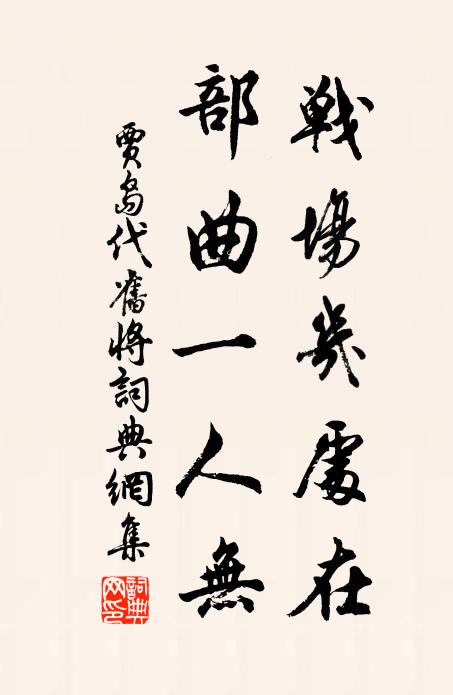 戰場幾處在
部曲一人無
賈島代舊將詞典網集
詞典網印